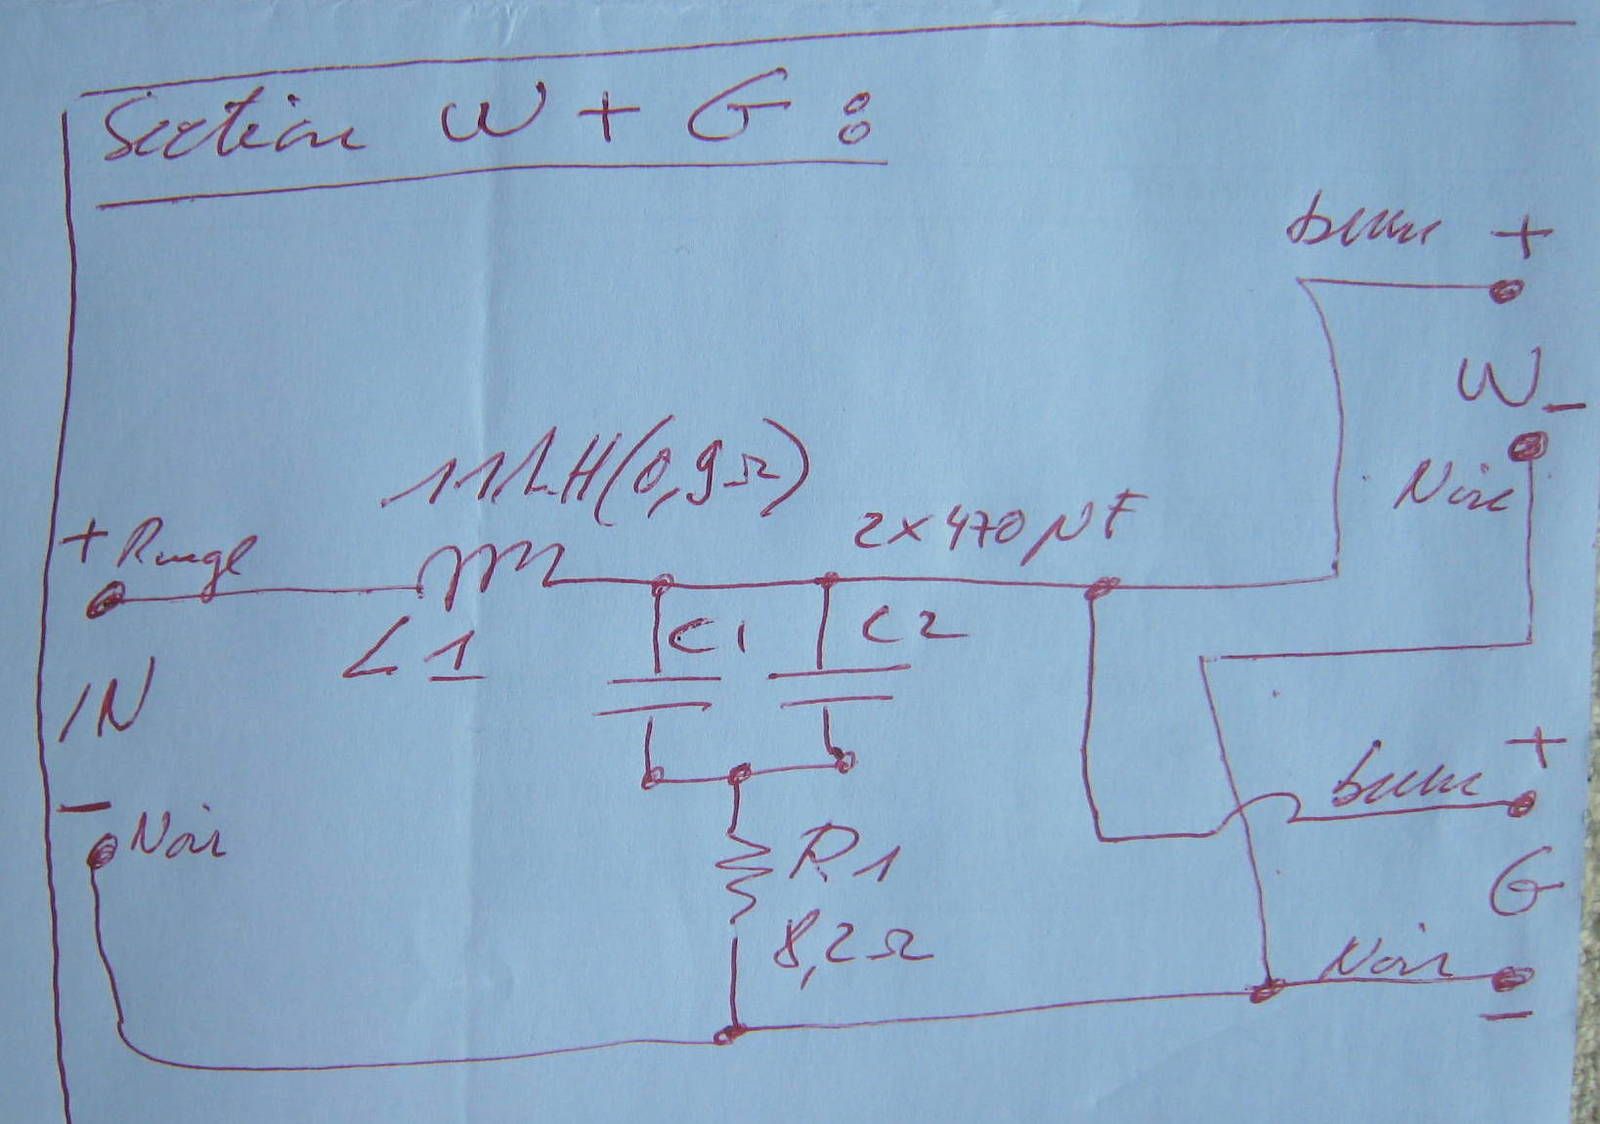 Section W + G :
brun +
W -
Noir
11mH(0,9Ω)
2x470µF
+ Rouge
L1
C1
C2
IN
- Noir
R1
8,2Ω
brun +
G
Noir
-